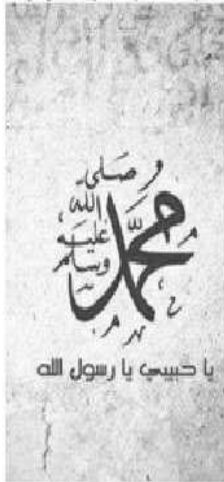 محمد
صلى
الله
عليه
وسلم
يا حبيبي يا رسول الله